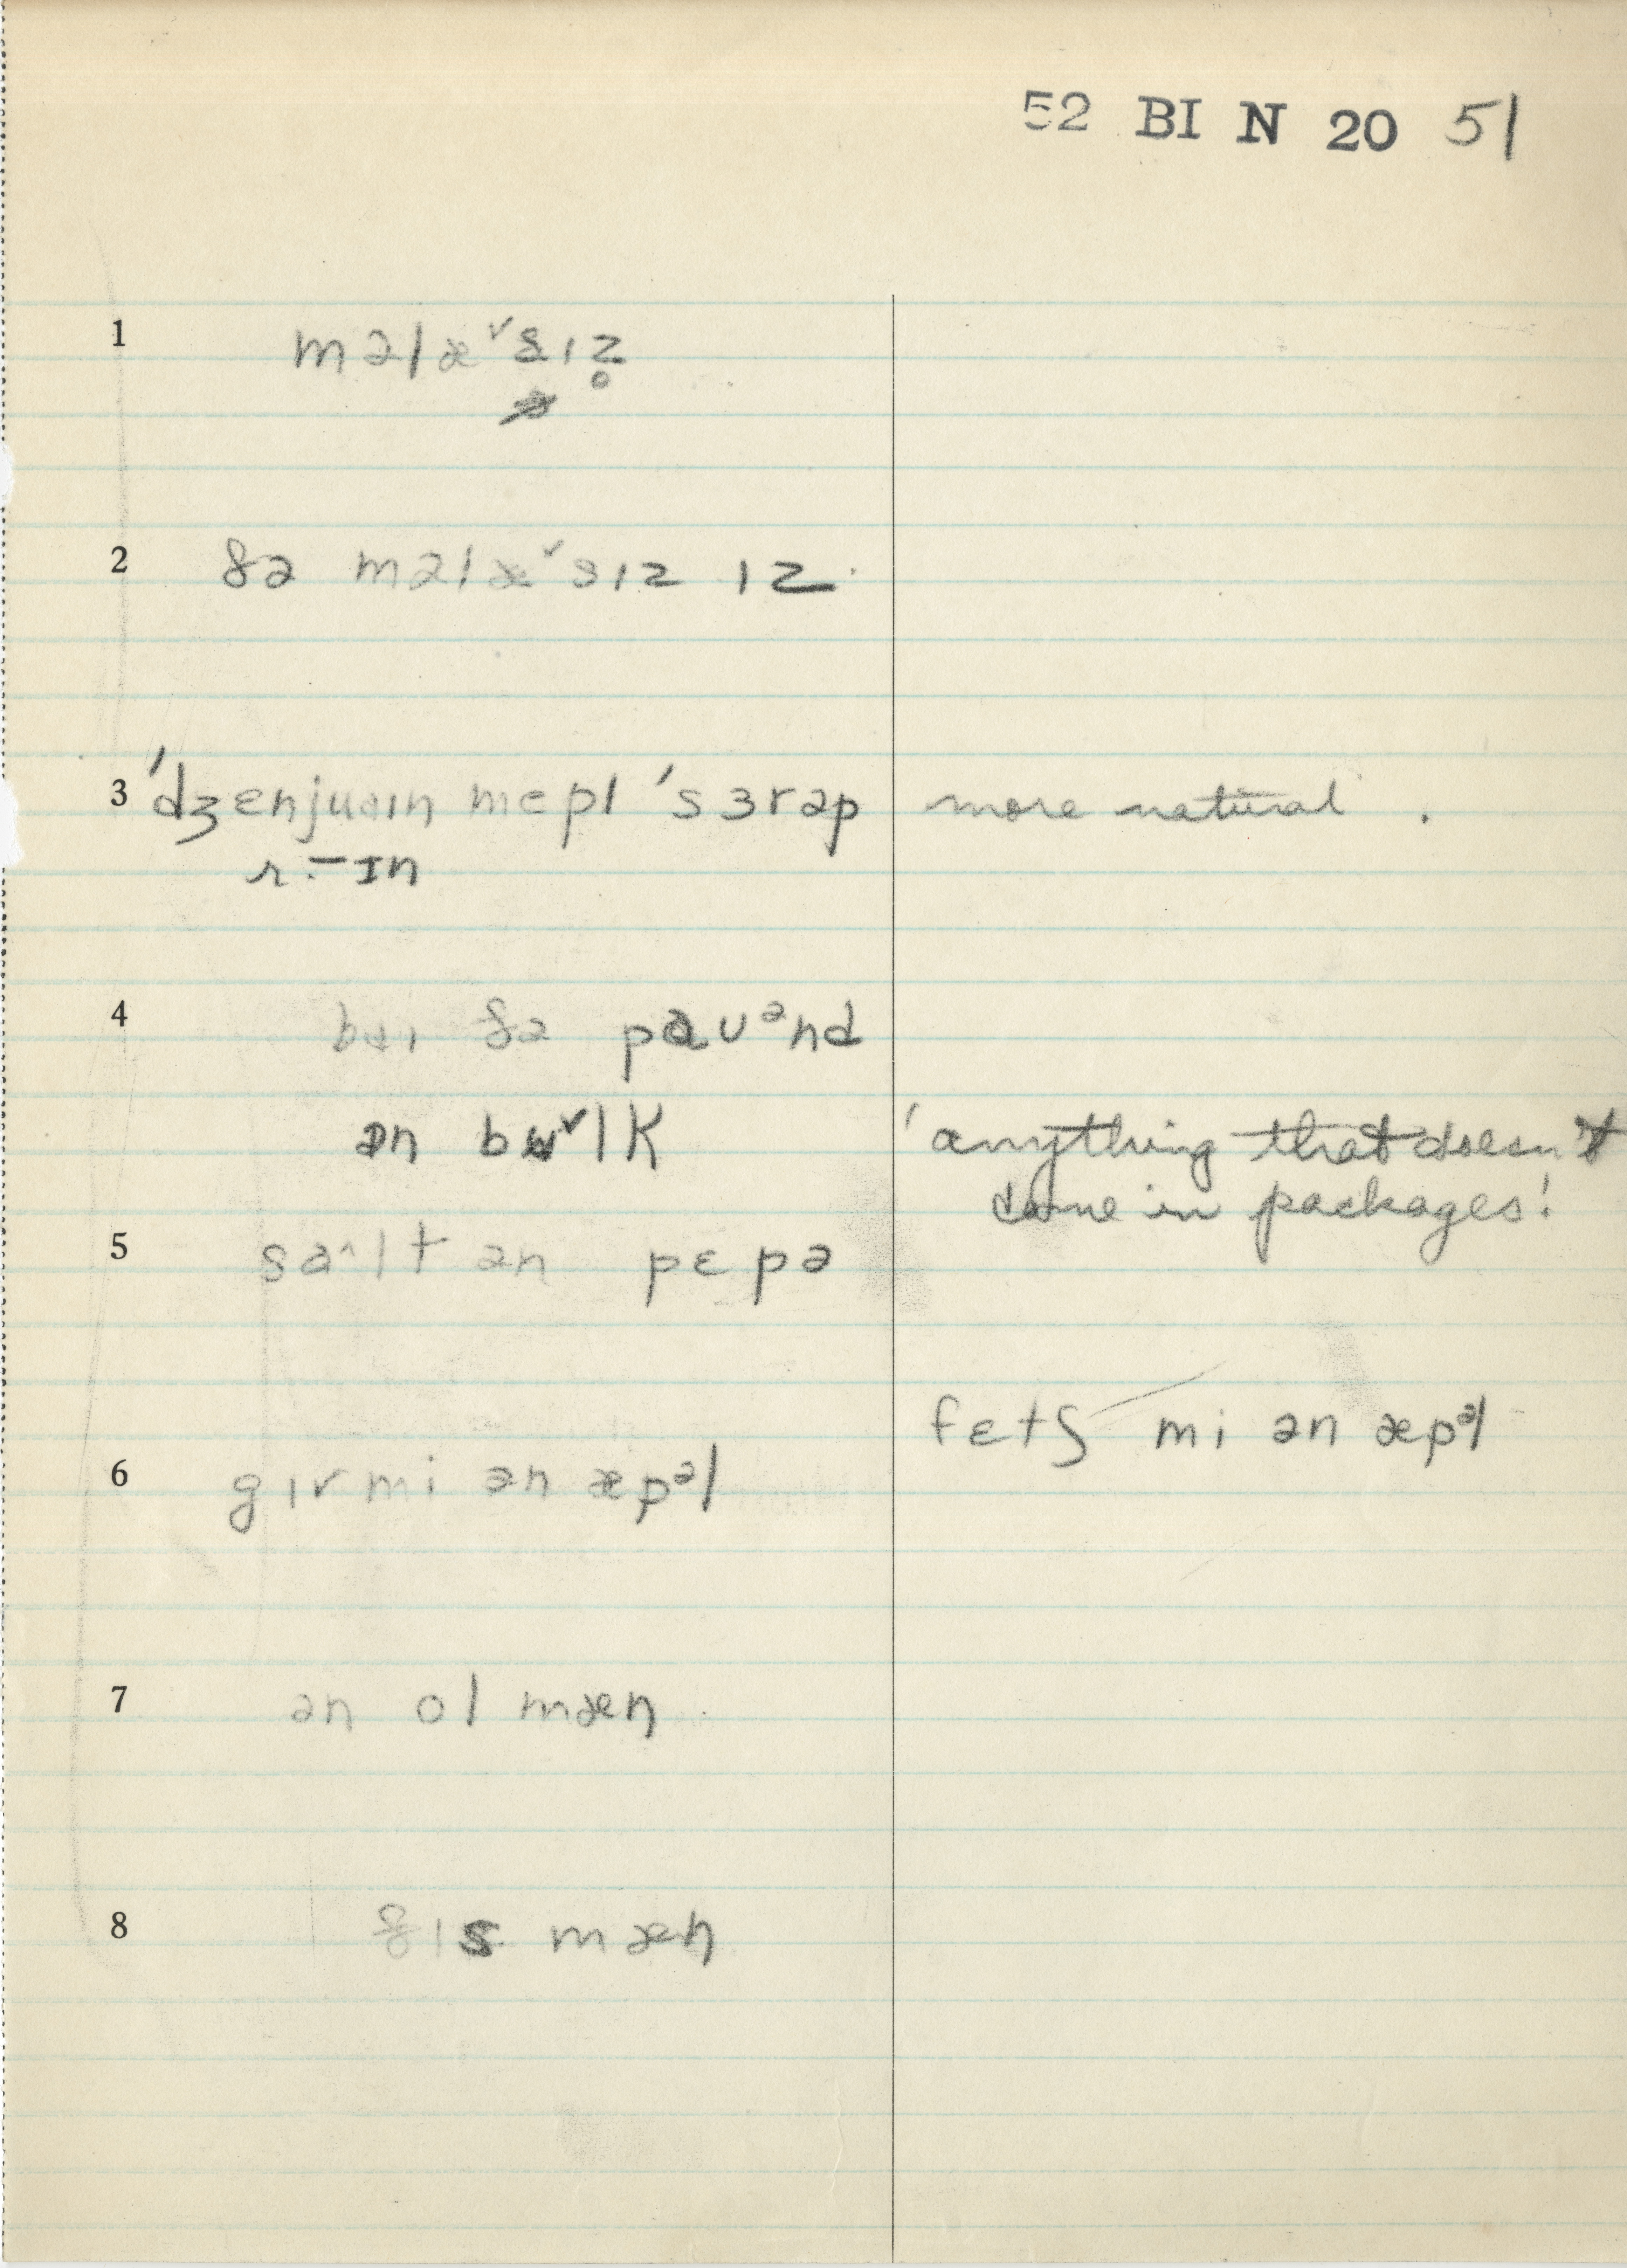 52 BI N 20 51
1 məlæˇsɪz̥
2 ðə məlæˇsɪz ɪz
3 'dʒɛnjuaɪn mɛpl 'sɜrəp more natural.
r. – ɪn
4 baɪ ðə pɑʊᵊnd
ən bʌˇlk 'anything that doesn't
come in packages!
5 sɑ^lt ən pɛpə
fɛtʃ mi ən æpᵊl
6 gɪv mi ən æpᵊl
7 ən ol mæn
8 ðɪs mæn